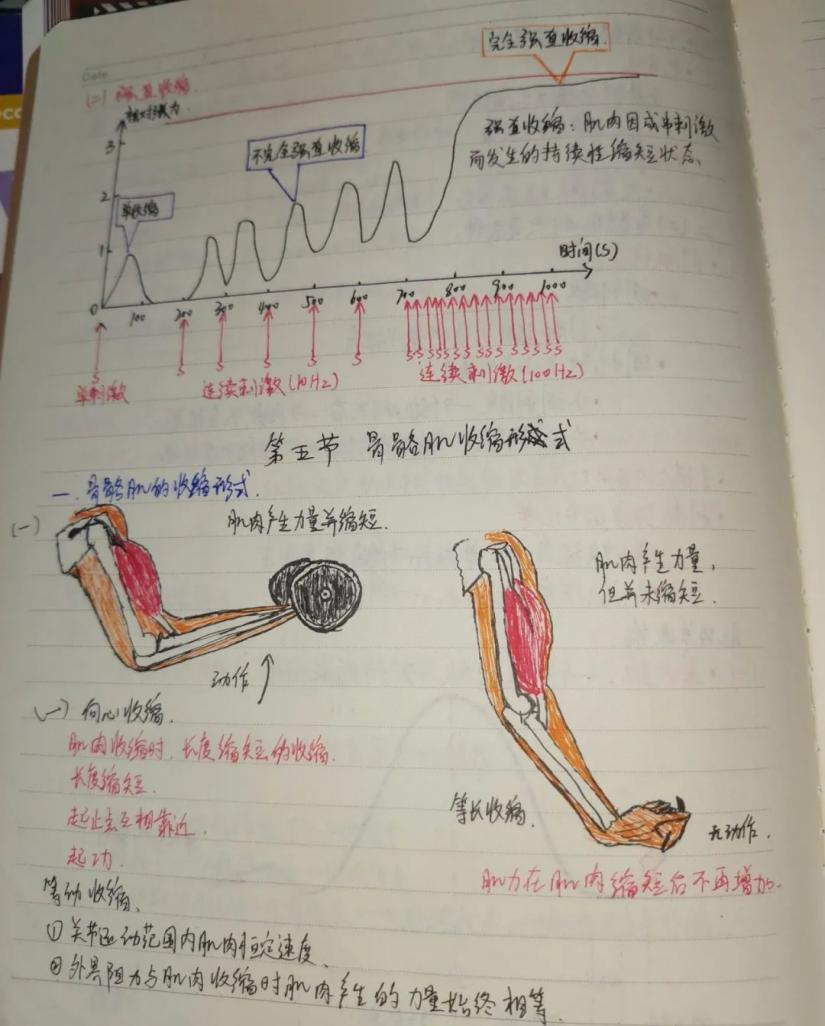 Date
完全强直收缩.
(二) 强直收缩.
相对张力
强直收缩: 肌肉因成串刺激
而发生的持续性缩短状态、
3
不完全强直收缩
2
单收缩
1
时间(S)
0 100 200 300 400 500 600 700 800 900 1000
S S S S S S S S S S S S S S S S S S S
单刺激 连续刺激(10Hz) 连续刺激(100Hz)
第五节 骨骼肌收缩形式
一. 骨骼肌的收缩形式.
(一)
肌肉产生力量并缩短.
肌肉产生力量,
但并未缩短.
动作
(一) 向心收缩.
肌肉收缩时, 长度缩短的收缩.
长度缩短.
起止点互相靠近.
起功.
等长收缩.
无动作.
肌力在肌肉缩短后不再增加.
等动收缩、
① 关节运动范围内肌肉恒定速度、
② 外界阻力与肌肉收缩时肌肉产生的力量始终相等.